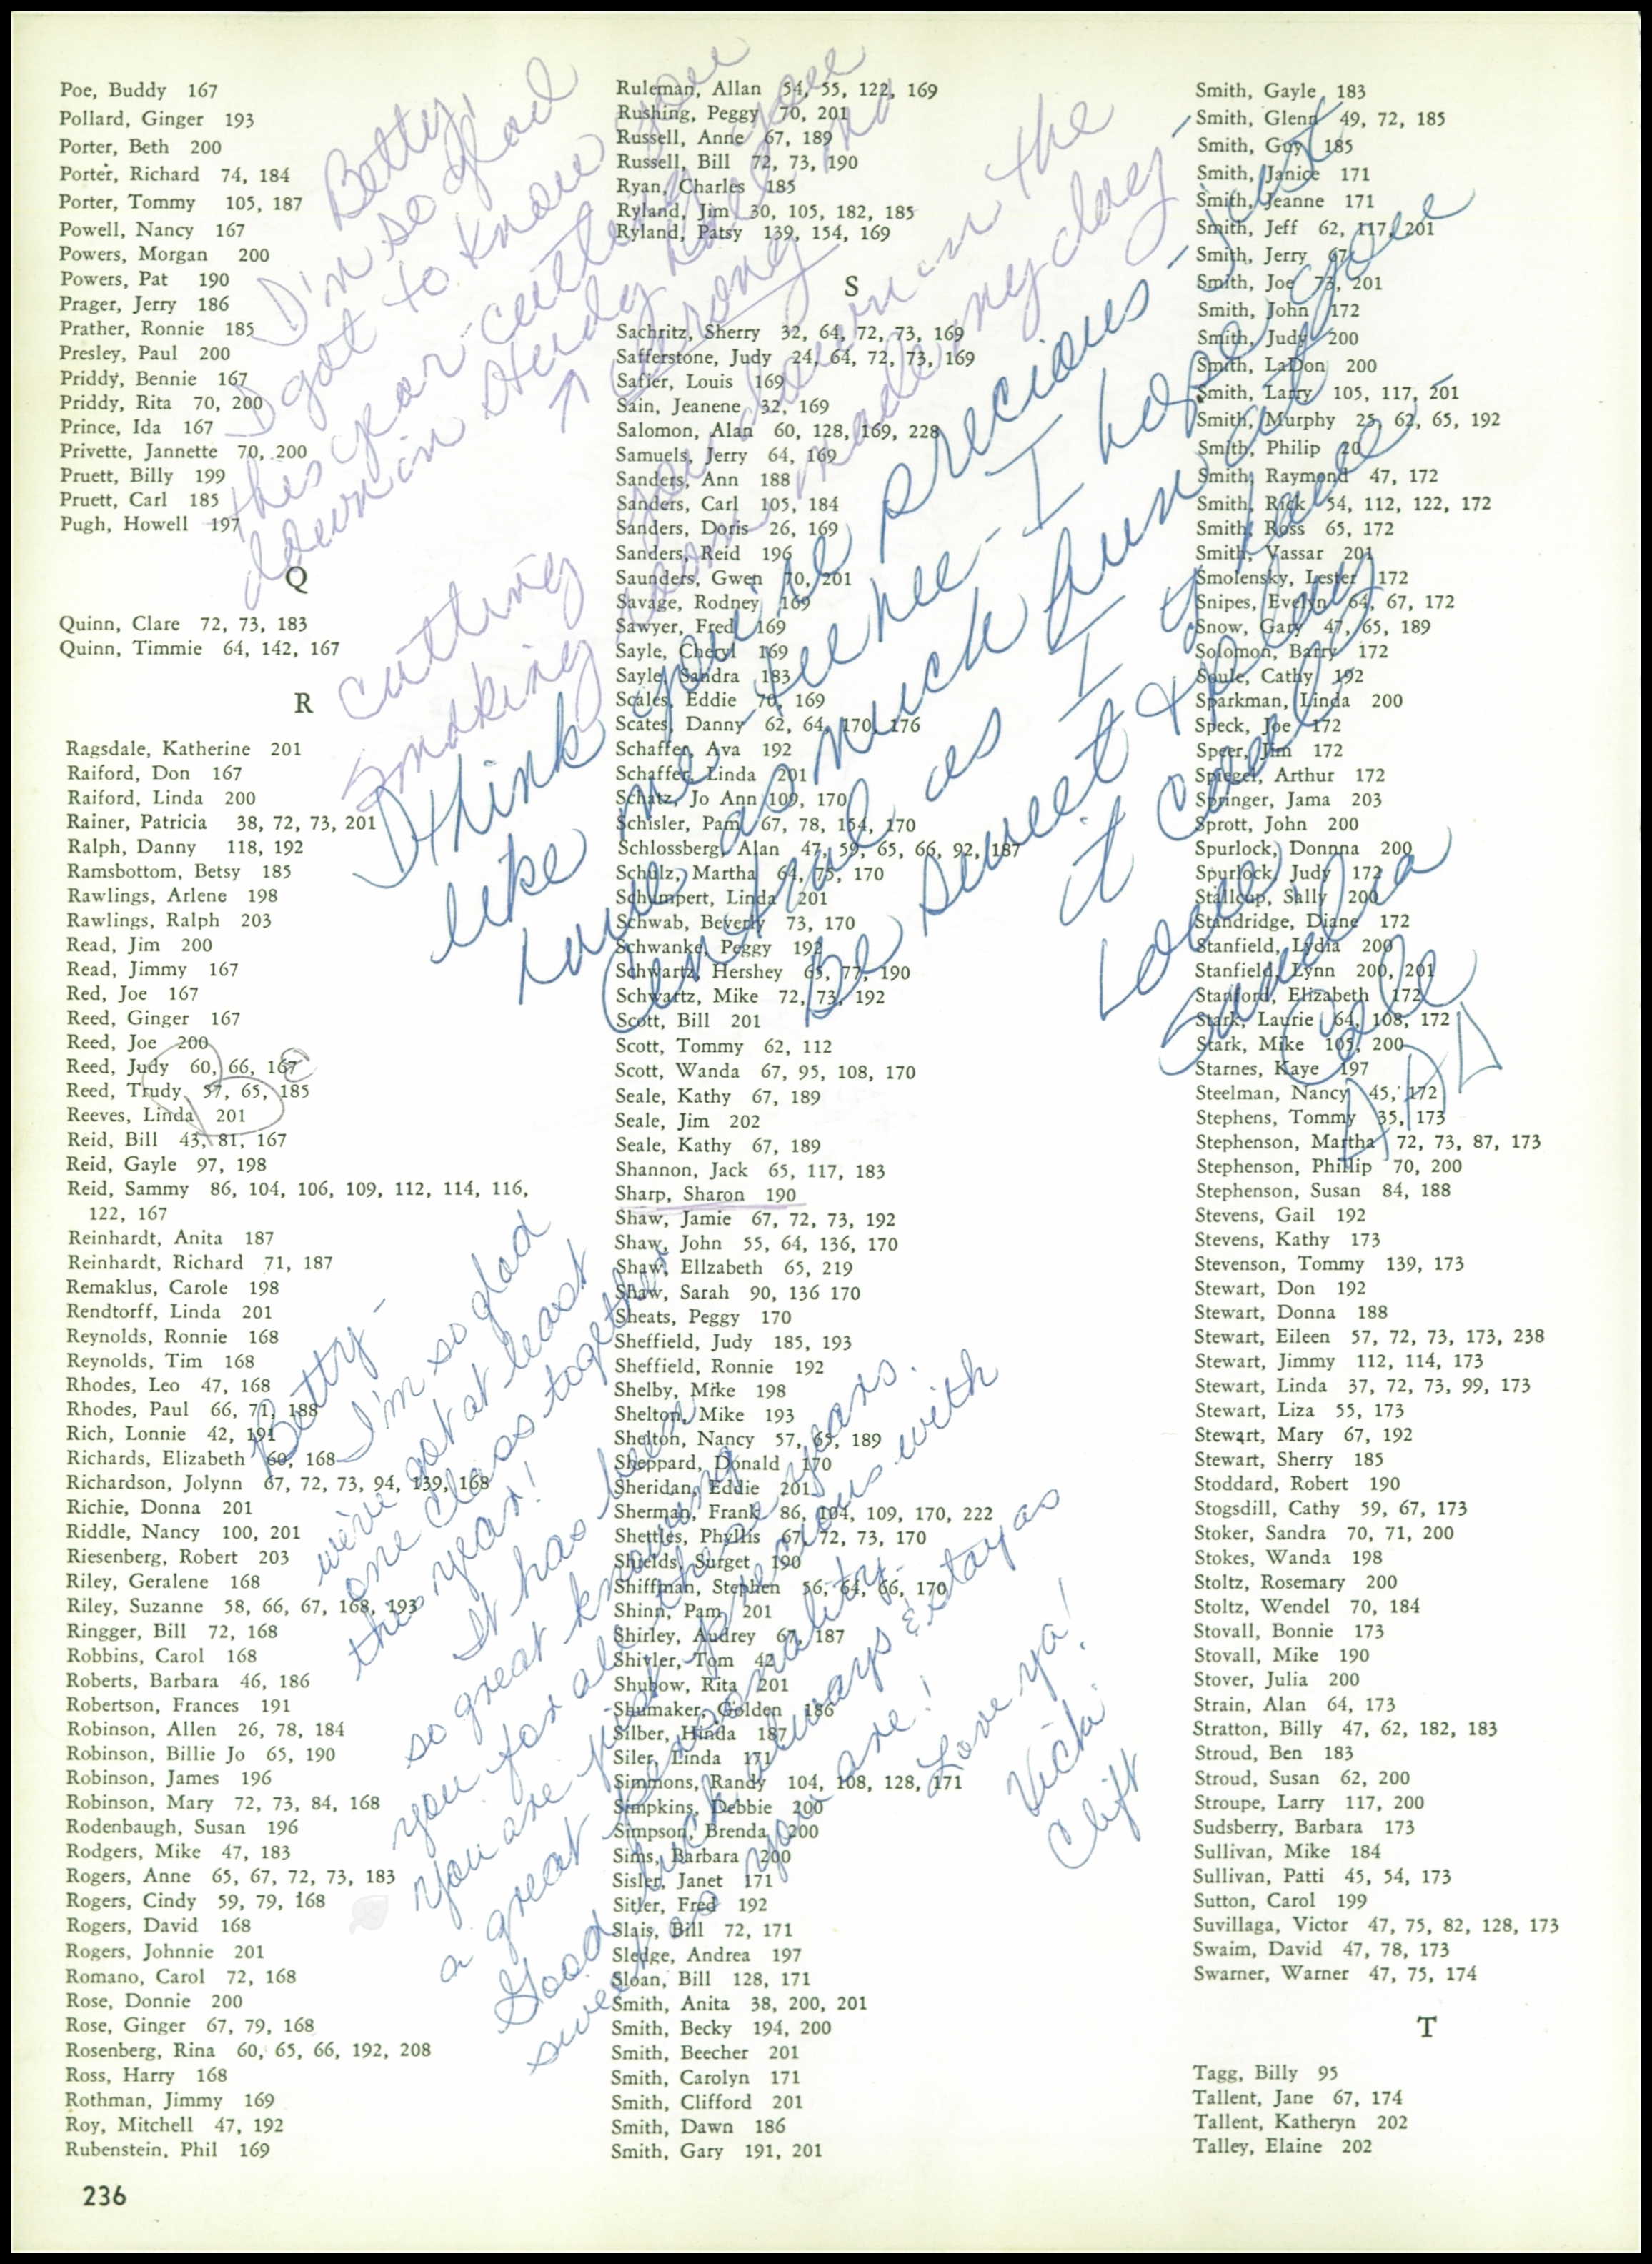 Poe, Buddy 167
Pollard, Ginger 193
Porter, Beth 200
Porter, Richard 74, 184
Porter, Tommy 105, 187
Powell, Nancy 167
Powers, Morgan 200
Powers, Pat 190
Prager, Jerry 186
Prather, Ronnie 185
Presley, Paul 200
Priddy, Bennie 167
Priddy, Rita 70, 200
Prince, Ida 167
Privette, Jannette 70, 200
Pruett, Billy 199
Pruett, Carl 185
Pugh, Howell 197
Q
Quinn, Clare 72, 73, 183
Quinn, Timmie 64, 142, 167
R
Ragsdale, Katherine 201
Raiford, Don 167
Raiford, Linda 200
Rainer, Patricia 38, 72, 73, 201
Ralph, Danny 118, 192
Ramsbottom, Betsy 185
Rawlings, Arlene 198
Rawlings, Ralph 203
Read, Jim 200
Read, Jimmy 167
Red, Joe 167
Reed, Ginger 167
Reed, Joe 200
Reed, Judy 60, 66, 167
Reed, Trudy 57, 65, 185
Reeves, Linda 201
Reid, Bill 43, 81, 167
Reid, Gayle 97, 198
Reid, Sammy 86, 104, 106, 109, 112, 114, 116,
122, 167
Reinhardt, Anita 187
Reinhardt, Richard 71, 187
Remaklus, Carole 198
Rendtorff, Linda 201
Reynolds, Ronnie 168
Reynolds, Tim 168
Rhodes, Leo 47, 168
Rhodes, Paul 66, 71, 188
Rich, Lonnie 42, 191
Richards, Elizabeth 60, 168
Richardson, Jolynn 67, 72, 73, 94, 139, 168
Richie, Donna 201
Riddle, Nancy 100, 201
Riesenberg, Robert 203
Riley, Geralene 168
Riley, Suzanne 58, 66, 67, 168, 193
Ringger, Bill 72, 168
Robbins, Carol 168
Roberts, Barbara 46, 186
Robertson, Frances 191
Robinson, Allen 26, 78, 184
Robinson, Billie Jo 65, 190
Robinson, James 196
Robinson, Mary 72, 73, 84, 168
Rodenbaugh, Susan 196
Rodgers, Mike 47, 183
Rogers, Anne 65, 67, 72, 73, 183
Rogers, Cindy 59, 79, 168
Rogers, David 168
Rogers, Johnnie 201
Romano, Carol 72, 168
Rose, Donnie 200
Rose, Ginger 67, 79, 168
Rosenberg, Rina 60, 65, 66, 192, 208
Ross, Harry 168
Rothman, Jimmy 169
Roy, Mitchell 47, 192
Rubenstein, Phil 169
236
Ruleman, Allan 54, 55, 122, 169
Rushing, Peggy 70, 201
Russell, Anne 67, 189
Russell, Bill 72, 73, 190
Ryan, Charles 185
Ryland, Jim 30, 105, 182, 185
Ryland, Patsy 139, 154, 169
S
Sachritz, Sherry 32, 64, 72, 73, 169
Safferstone, Judy 24, 64, 72, 73, 169
Safier, Louis 169
Sain, Jeanene 32, 169
Salomon, Alan 60, 128, 169, 228
Samuels, Jerry 64, 169
Sanders, Ann 188
Sanders, Carl 105, 184
Sanders, Doris 26, 169
Sanders, Reid 196
Saunders, Gwen 70, 201
Savage, Rodney 169
Sawyer, Fred 169
Sayle, Cheryl 169
Sayle, Sandra 183
Scales, Eddie 70, 169
Scates, Danny 62, 64, 170, 176
Schaffer, Ava 192
Schaffer, Linda 201
Schatz, Jo Ann 109, 170
Schisler, Pam 67, 78, 154, 170
Schlossberg, Alan 47, 59, 65, 66, 92, 187
Schulz, Martha 64, 75, 170
Schumpert, Linda 201
Schwab, Beverly 73, 170
Schwanke, Peggy 192
Schwartz, Hershey 65, 77, 190
Schwartz, Mike 72, 73, 192
Scott, Bill 201
Scott, Tommy 62, 112
Scott, Wanda 67, 95, 108, 170
Seale, Kathy 67, 189
Seale, Jim 202
Seale, Kathy 67, 189
Shannon, Jack 65, 117, 183
Sharp, Sharon 190
Shaw, Jamie 67, 72, 73, 192
Shaw, John 55, 64, 136, 170
Shaw, Ellzabeth 65, 219
Shaw, Sarah 90, 136 170
Sheats, Peggy 170
Sheffield, Judy 185, 193
Sheffield, Ronnie 192
Shelby, Mike 198
Shelton, Mike 193
Shelton, Nancy 57, 65, 189
Sheppard, Donald 170
Sheridan, Eddie 201
Sherman, Frank 86, 104, 109, 170, 222
Shettles, Phyllis 67, 72, 73, 170
Shields, Surget 190
Shiffman, Stephen 56, 64, 66, 170
Shinn, Pam 201
Shirley, Audrey 67, 187
Shivler, Tom 42
Shubow, Rita 201
Shumaker, Golden 186
Silber, Hinda 187
Siler, Linda 171
Simmons, Randy 104, 108, 128, 171
Simpkins, Debbie 200
Simpson, Brenda 200
Sims, Barbara 200
Sisler, Janet 171
Sitler, Fred 192
Slais, Bill 72, 171
Sledge, Andrea 197
Sloan, Bill 128, 171
Smith, Anita 38, 200, 201
Smith, Becky 194, 200
Smith, Beecher 201
Smith, Carolyn 171
Smith, Clifford 201
Smith, Dawn 186
Smith, Gary 191, 201
Smith, Gayle 183
Smith, Glenn 49, 72, 185
Smith, Guy 185
Smith, Janice 171
Smith, Jeanne 171
Smith, Jeff 62, 117, 201
Smith, Jerry 67
Smith, Joe 73, 201
Smith, John 172
Smith, Judy 200
Smith, LaDon 200
Smith, Larry 105, 117, 201
Smith, Murphy 25, 62, 65, 192
Smith, Philip 20
Smith, Raymond 47, 172
Smith, Rick 54, 112, 122, 172
Smith, Ross 65, 172
Smith, Vassar 201
Smolensky, Lester 172
Snipes, Evelyn 64, 67, 172
Snow, Gary 47, 65, 189
Solomon, Barry 172
Soule, Cathy 192
Sparkman, Linda 200
Speck, Joe 172
Speer, Jim 172
Spiegel, Arthur 172
Springer, Jama 203
Sprott, John 200
Spurlock, Donnna 200
Spurlock, Judy 172
Stallcup, Sally 200
Standridge, Diane 172
Stanfield, Lydia 200
Stanfield, Lynn 200, 201
Stanford, Elizabeth 172
Stark, Laurie 64, 108, 172
Stark, Mike 105, 200
Starnes, Kaye 197
Steelman, Nancy 45, 172
Stephens, Tommy 35, 173
Stephenson, Martha 72, 73, 87, 173
Stephenson, Phillip 70, 200
Stephenson, Susan 84, 188
Stevens, Gail 192
Stevens, Kathy 173
Stevenson, Tommy 139, 173
Stewart, Don 192
Stewart, Donna 188
Stewart, Eileen 57, 72, 73, 173, 238
Stewart, Jimmy 112, 114, 173
Stewart, Linda 37, 72, 73, 99, 173
Stewart, Liza 55, 173
Stewart, Mary 67, 192
Stewart, Sherry 185
Stoddard, Robert 190
Stogsdill, Cathy 59, 67, 173
Stoker, Sandra 70, 71, 200
Stokes, Wanda 198
Stoltz, Rosemary 200
Stoltz, Wendel 70, 184
Stovall, Bonnie 173
Stovall, Mike 190
Stover, Julia 200
Strain, Alan 64, 173
Stratton, Billy 47, 62, 182, 183
Stroud, Ben 183
Stroud, Susan 62, 200
Stroupe, Larry 117, 200
Sudsberry, Barbara 173
Sullivan, Mike 184
Sullivan, Patti 45, 54, 173
Sutton, Carol 199
Suvillaga, Victor 47, 75, 82, 128, 173
Swaim, David 47, 78, 173
Swarner, Warner 47, 75, 174
T
Tagg, Billy 95
Tallent, Jane 67, 174
Tallent, Katheryn 202
Talley, Elaine 202
Betty,
I'm so glad
I got to know you
this year - cutting
down in study hall no
↑ wrong
cutting you down in the
smoking room made my day -
I think you're precious - just
like me - tee hee - I hope you
have as much fun at
Central as I have -
Be sweet &
it
Love,
Cole
Be
Betty -
I'm so glad
we've got at least
one class together
this year!
It has been
so great knowing
you for all these years.
You are just precious with
a great personality.
Good luck always & stay as
sweet as you are!
Love ya!
Vicki
Clift